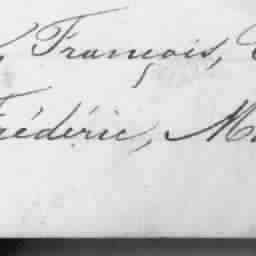 François,
Frédéric, M